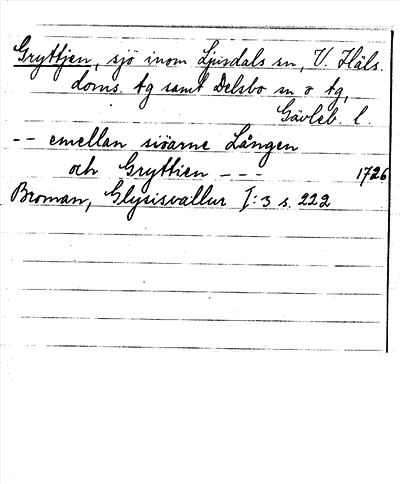 Gryttjen, sjö inom Ljusdals sn, V. Häls.
doms. tg samt Delsbo sn o tg,
Gävleb. l.
-- emellan siöarne Lången
och Gryttien --- 1726
Broman, Glysisvallur I:3 s. 222